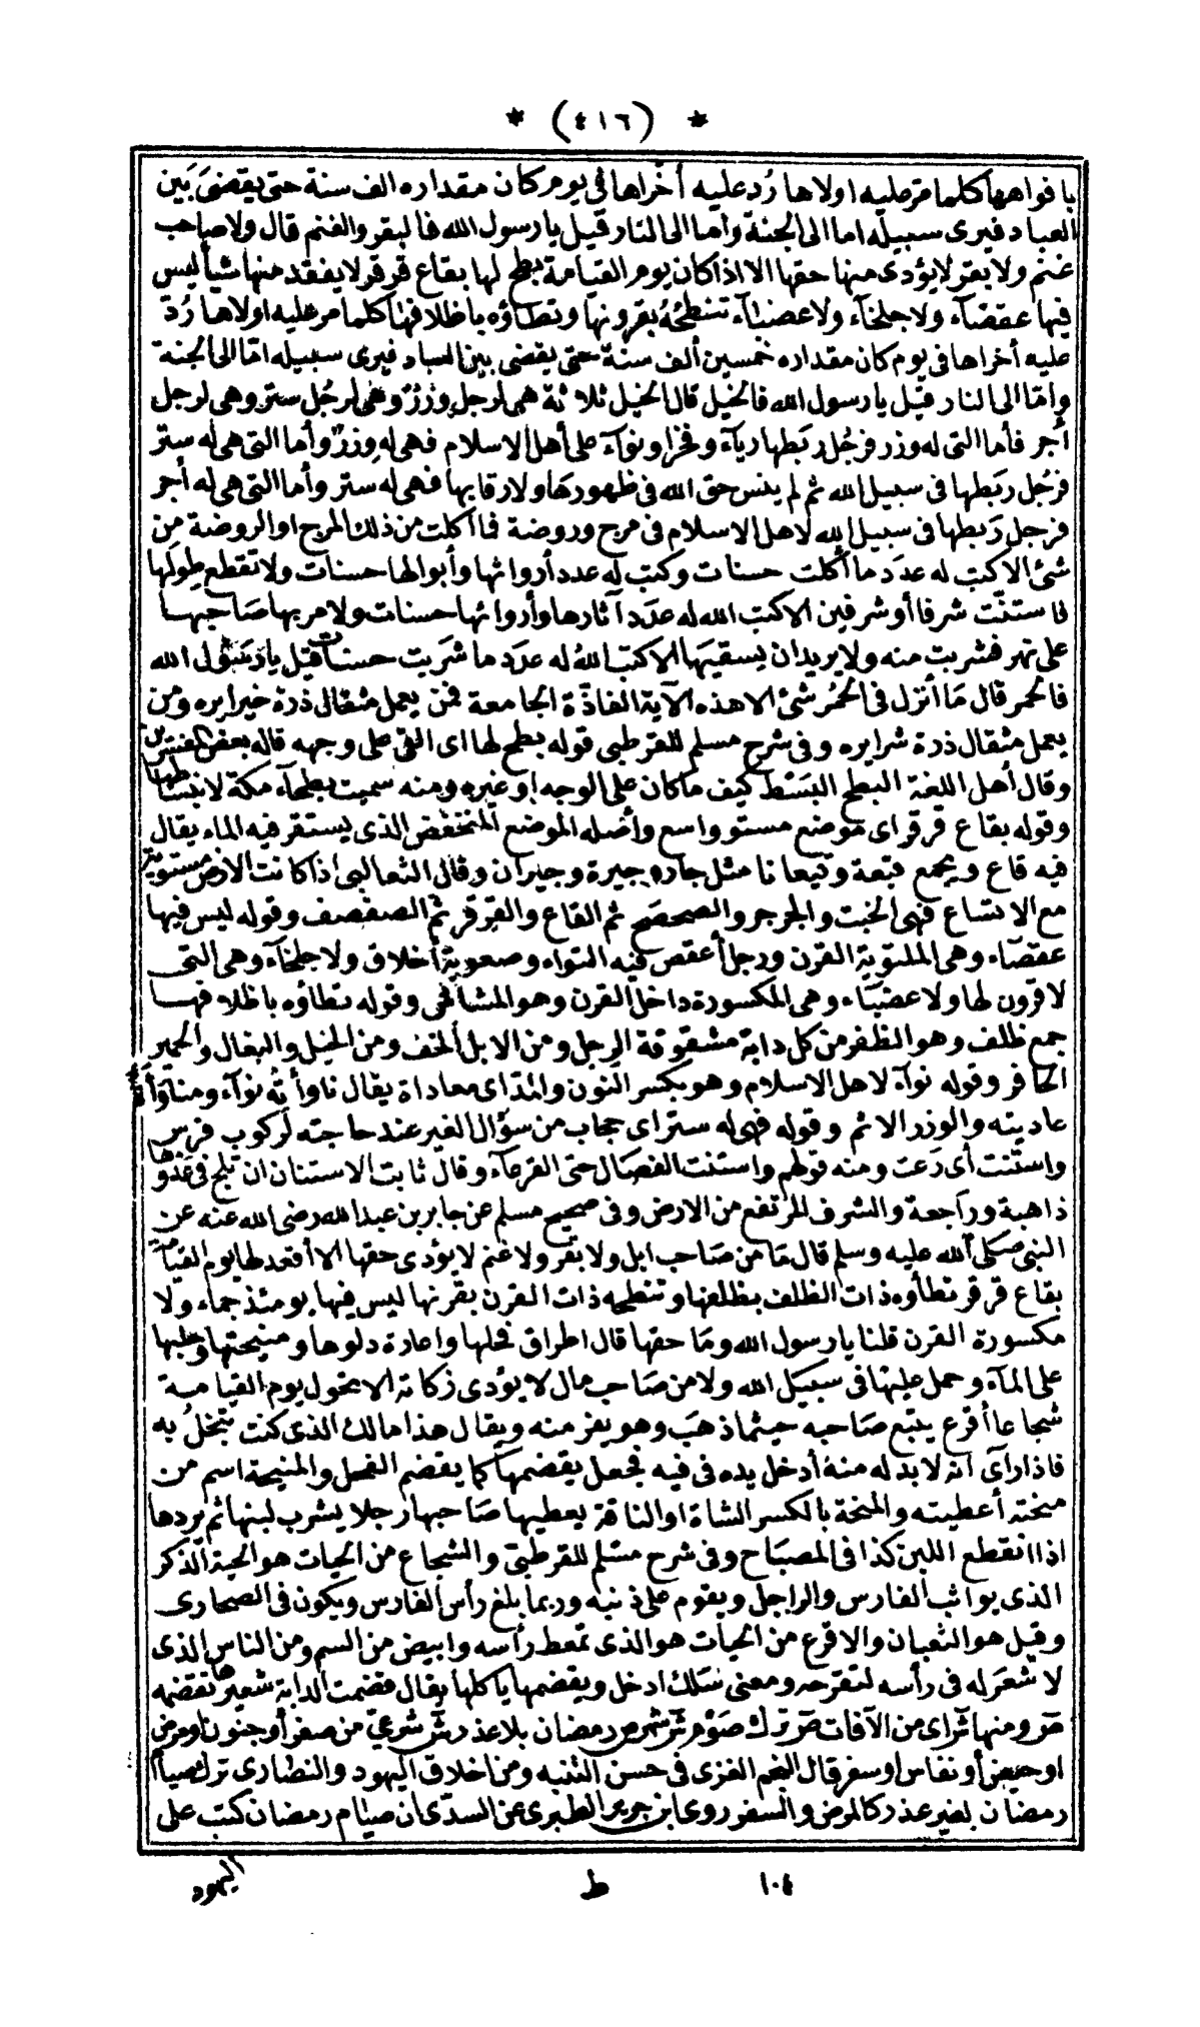 * (٤١٦) *
بافواهها كلما مر عليه اولاها رُد عليه أخراها فى يوم كان مقداره الف سنة حتى يقضىَ بَين
العباد فيرى سبيله اما الى الجنة وأما الى النار قيل يا رسول الله فالبقر والغنم قال ولا صاحب
غنم ولا بقر لا يؤدى منها حقها الا اذا كان يوم القيامة بطح لها بقاع قرقر لا يفقد منها شيأ ليس
فيها عقصآء ولا جلحآء ولا عضبآء تنطحُهُ بقرونها وتطاؤه باظلافها كلما مر عليه اولاها رُدّ
عليه أخراها فى يوم كان مقداره خمسين ألف سنة حتى يقضى بين العباد فيرى سبيله امّا الى الجنة
وامّا الى النار قيل يا رسول الله فالخيل قال الخيل ثلاثة هى لرجل وِزرٌ وهى لرجُل ستر وهى لرجل
أجر فأما التى له وزر فرجُل ربَطها ريآء وفخرا ونوآء على أهل الاسلام فهى له وِزرٌ وأما التى هى له ستر
فرجُل ربَطها فى سبيل الله ثم لم ينس حق الله فى ظهورها ولا رقابها فهى له ستر وأما التى هى له أجر
فرجل رَبطها فى سبيل الله لاهل الاسلام فى مرج وروضة فما اكلت من ذلك المرج او الروضة مِن
شئ الا كتب له عدَد ما أكلت حسنات وكتب له عدد أرواثها وأبوالها حسنات ولا تقطع طِوَلها
فاستنّت شرفا أو شرفين الا كتب الله له عدَد آثارها وأرواثها حسنات ولا مر بها صَاحبها
على نهر فشربت منه ولا يريد ان يسقيَها الا كتب اللهُ له عدَد ما شَربت حسنات قيل يا رسُول الله
فالحمر قال مَا أنزل فى الحُمُر شئ الا هذه الآية الفاذّة الجامعة فمَن يعمل مثقال ذرة خيرا يره ومَن
يعمل مثقال ذرة شرا يره وفى شرح مسلم للقرطبى قوله بطح لها اى القى على وجهه قاله بعض المفسرين
وقال أهل اللغة البطح البَسْط كيف ما كان على الوجه او غيره ومنه سميت بطحآء مكة لانبساطها
وقوله بقاع قرقر اى موضع مستو واسع وأصله الموضع المنخفض الذى يستقر فيه الماء يقال
فيه قاع ويجمع قيعة وقيعانا مثل جار وجيرة وجيران وقال الثعالبى اذا كانت الارض مستوية
مع الاتساع فهى الخبت والجرجر والصحصح ثم القاع والقرقر ثم الصفصف وقوله ليس فيها
عقصآء وهى الملتوية القرن ورجل أعقص فيه التواء وصعوبة أخلاق ولا جلحآء وهى التى
لا قرون لها ولا عضبآء وهى المكسورة داخل القرن وهو المشاش وقوله تطاؤه باظلافها
جمع ظلف وهو الظفر من كل دابة مشقوقة الرجل ومن الابل الخف ومن الخيل والبغال والحمير
الحافر وقوله نوآء لاهل الاسلام وهو بكسر النون والمدّ اى معاداة يقال ناوأته نوآء ومناوأة
عاديته والوزر الاثم وقوله فهى له ستر اى حجاب من سؤال الغير عند حاجته لركوب فرس
واستنت أى رَعت ومنه قولهم واستنت الفصال حتى القرعآء وقال ثابت الاستنان ان تلج فى عَدوها
ذاهبة وراجعة والشرف المرتفع من الارض وفى صحيح مسلم عن جابر بن عبد الله رضى الله عنه عن
النبى صَلى الله عليه وسلم قال مَا من صَاحب ابل ولا بقر ولا غنم لا يؤدى حقها الا أقعد لها يوم القيامة
بقاع قرقر تطأوه ذات الظلف بظلفها وتنطحه ذات القرن بقرنها ليس فيها يومئذ جماء ولا
مكسورة القرن قلنا يا رسول الله ومَا حقها قال اطراق فحلها واعارة دلوها ومنيحتها وحلبها
على المآء وحمل عليها فى سبيل الله ولا من صَاحب مال لا يؤدى زكاته الا تحول يوم القيامة
شجاعا أقرع يتبع صَاحبه حيثما ذهَب وهو يفر منه ويقال هذا مالك الذى كنت تبخلُ به
فاذا رآى انه لا بد له منه أدخل يده فى فيه فجعل يقضمها كما يقضم الفحل والمنيحة اسم من
منحته أعطيته والمنحة بالكسر الشاة او الناقة يعطيها صَاحبها رجلا يشرب لبنها ثم يردها
اذا انقطع اللبن كذا فى المصبَاح وفى شرح مسْلم للقرطبىّ والشجاع من الحيات هو الحية الذكر
الذى يواثب الفارس والراجل ويقوم على ذنبه وربما بلغ رأس الفارس ويكون فى الصحارى
وقيل هو الثعبان والاقرع من الحيات هو الذى تمعط رأسه وابيض من السم ومن الناس الذى
لا شعَر له فى رأسه لتقرحه ومعنى سَلك ادخل ويقضمها يأكلها يقال قضمت الدابة شعيرها تقضمه
ص ومنها ش اى من الآفات ص ترك صَوْم ش شهر ص رمضان بلا عذر ش شرعىّ من صغر أو جنون او مرض
او حيض أو نفاس او سفر قال النجم الغزى فى حسن التنبه ومن اخلاق اليهود والنصَارى ترك صيام
رمضان لغير عذر كالمرض والسفر روى ابن جرير الطبرى عن السدّى ان صيَام رمضان كتب على
١٠٤
ط
اليهود